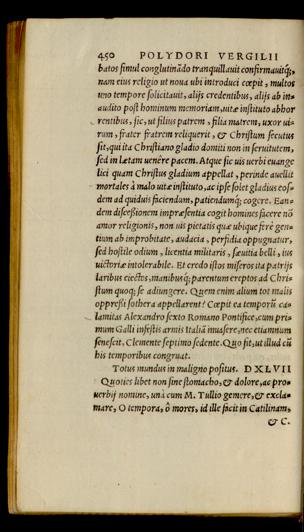 450 POLYDORI VERGILII
batos simul conglutinãdo tranquillauit confirmauitq́;,
nam eius religio ut noua ubi introduci cœpit, multos
uno tempore solicitauit, alijs credentibus, alijs ab in-
audito post hominum memoriam, uitæ instituto abhor
rentibus, sic, ut filius patrem, filia matrem, uxor ui-
rum, frater fratrem reliquerit, & Christum secutus
sit, qui ita Christiano gladio domiti non in seruitutem,
sed in lætam uenêre pacem. Atque sic uis uerbi euange
lici quam Christus gladium appellat, perinde auellit
mortales à malo uitæ instituto, ac ipse solet gladius eos-
dem ad quiduis faciendum, patiendumq; cogere. Ean-
dem discessionem impræsentia cogit homines facere nõ
amor religionis, non uis pietatis quæ ubique ferè gen-
tium ab improbitate, audacia, perfidia oppugnatur,
sed hostile odium, licentia militaris, sæuitia belli, ius
uictoriæ intolerabile. Et credo istos miseros ita patrijs
laribus eiectos, manibusq́; parentum ereptos ad Chri-
stum quoq; se adiungere. Quem enim alium tot malis
oppressi sothera appellarent? Cœpit ea temporũ ca-
lamitas Alexandro sexto Romano Pontifice, cum pri-
mum Galli infestis armis Italiã inuasere, nec etiamnum
senescit, Clemente septimo sedente. Quo fit, ut illud cũ
his temporibus congruat.
Totus mundus in maligno positus. DXLVII
Quoties libet non sine stomacho, & dolore, ac pro-
uerbij nomine, unà cum M. Tullio gemere, & excla-
mare, O tempora, ô mores, id ille facit in Catilinam,
& C.